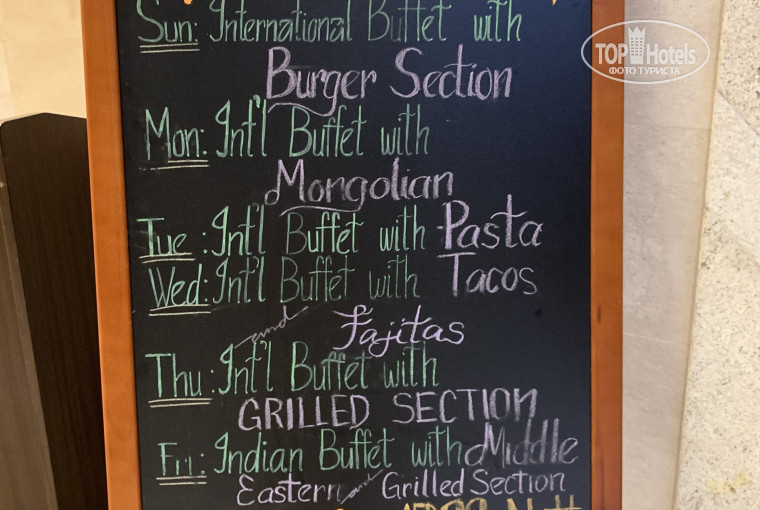 Sun: International Buffet with
Burger Section
Mon: Int'l Buffet with
Mongolian
Tue: Int'l Buffet with Pasta
Wed: Int'l Buffet with Tacos
and Fajitas
Thu: Int'l Buffet with
GRILLED SECTION
Fri: Indian Buffet with Middle
Eastern and Grilled Section
TOP Hotels
ФОТО ТУРИСТА